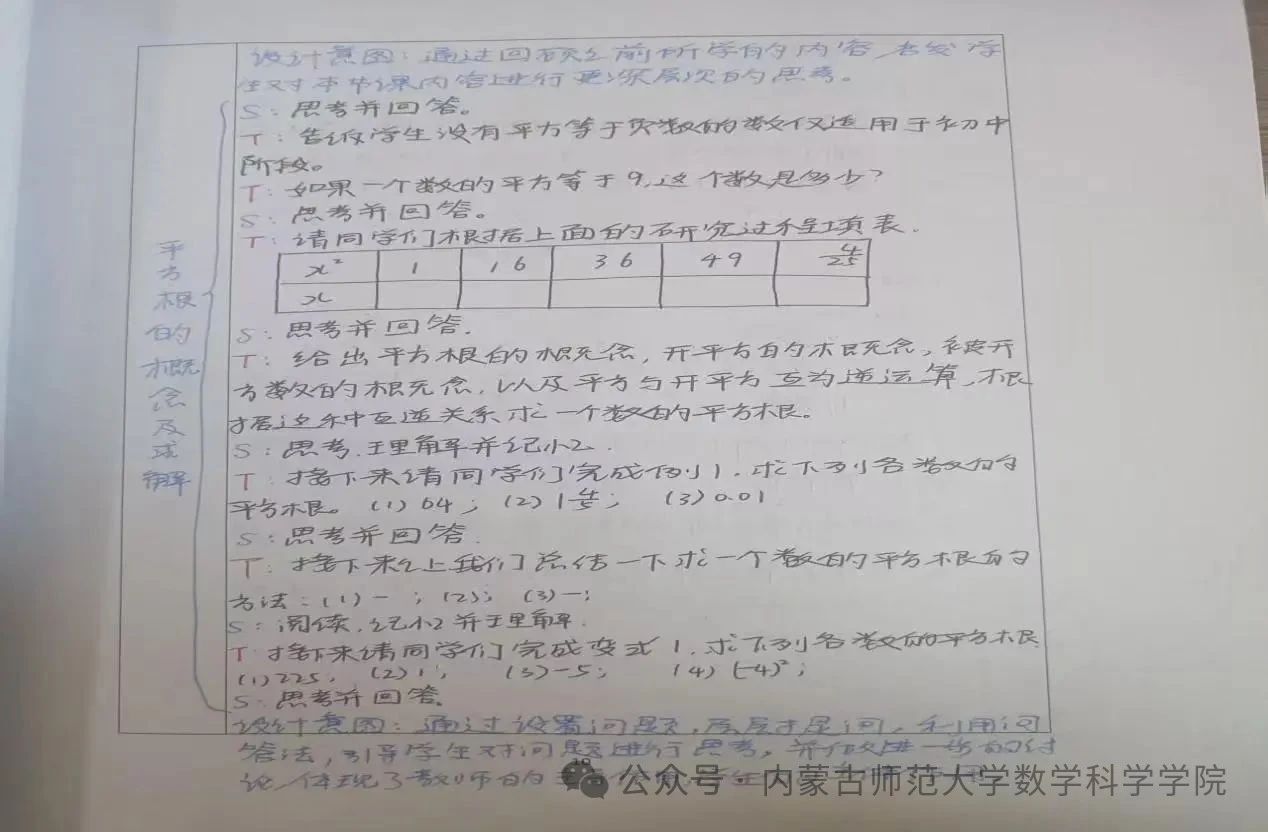 设计意图：通过回顾之前所学的内容，启发学
生对本节课内容进行更深层次的思考。
S：思考并回答。
T：告诉学生没有平方等于负数的数仅适用于初中
阶段。
T：如果一个数的平方等于9，这个数是多少？
S：思考并回答。
T：请同学们根据上面的研究过程填表.
x² 1 16 36 49 4/25
x
S：思考并回答.
T：给出平方根的概念，开平方的概念，被开
方数的概念，以及平方与开平方互为逆运算，根
据这种互逆关系求一个数的平方根。
S：思考，理解并记忆.
T：接下来请同学们完成例1.求下列各数的
平方根。(1)64；(2)1 4/5；(3)0.01
S：思考并回答.
T：接下来让我们总结一下求一个数的平方根的
方法：(1)一；(2)；(3)一；
S：阅读，记忆并理解.
T：接下来请同学们完成变式1.求下列各数的平方根
(1)225；(2)1；(3)-5；(4)(-4)²；
S：思考并回答.
设计意图：通过设置问题，层层提问，利用问
答法，引导学生对问题进行思考，并做进一步的讨
论，体现了教师的
平方根的概念及求解
公众号·内蒙古师范大学数学科学学院